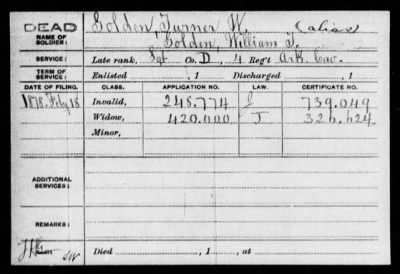 DEAD
NAME OF SOLDIER:
Golden, Turner W.
(alias)
Golden, William T.
SERVICE:
Late rank, Sgt Co. D, 4 Reg't Ark Cav.
TERM OF SERVICE:
Enlisted , 1 Discharged , 1
DATE OF FILING. CLASS. APPLICATION NO. LAW. CERTIFICATE NO.
1878. Feby 18 Invalid, 248.774 739.049
Widow, 420.000 J 326.624
Minor,
ADDITIONAL SERVICES:
REMARKS:
Died , 1 , at